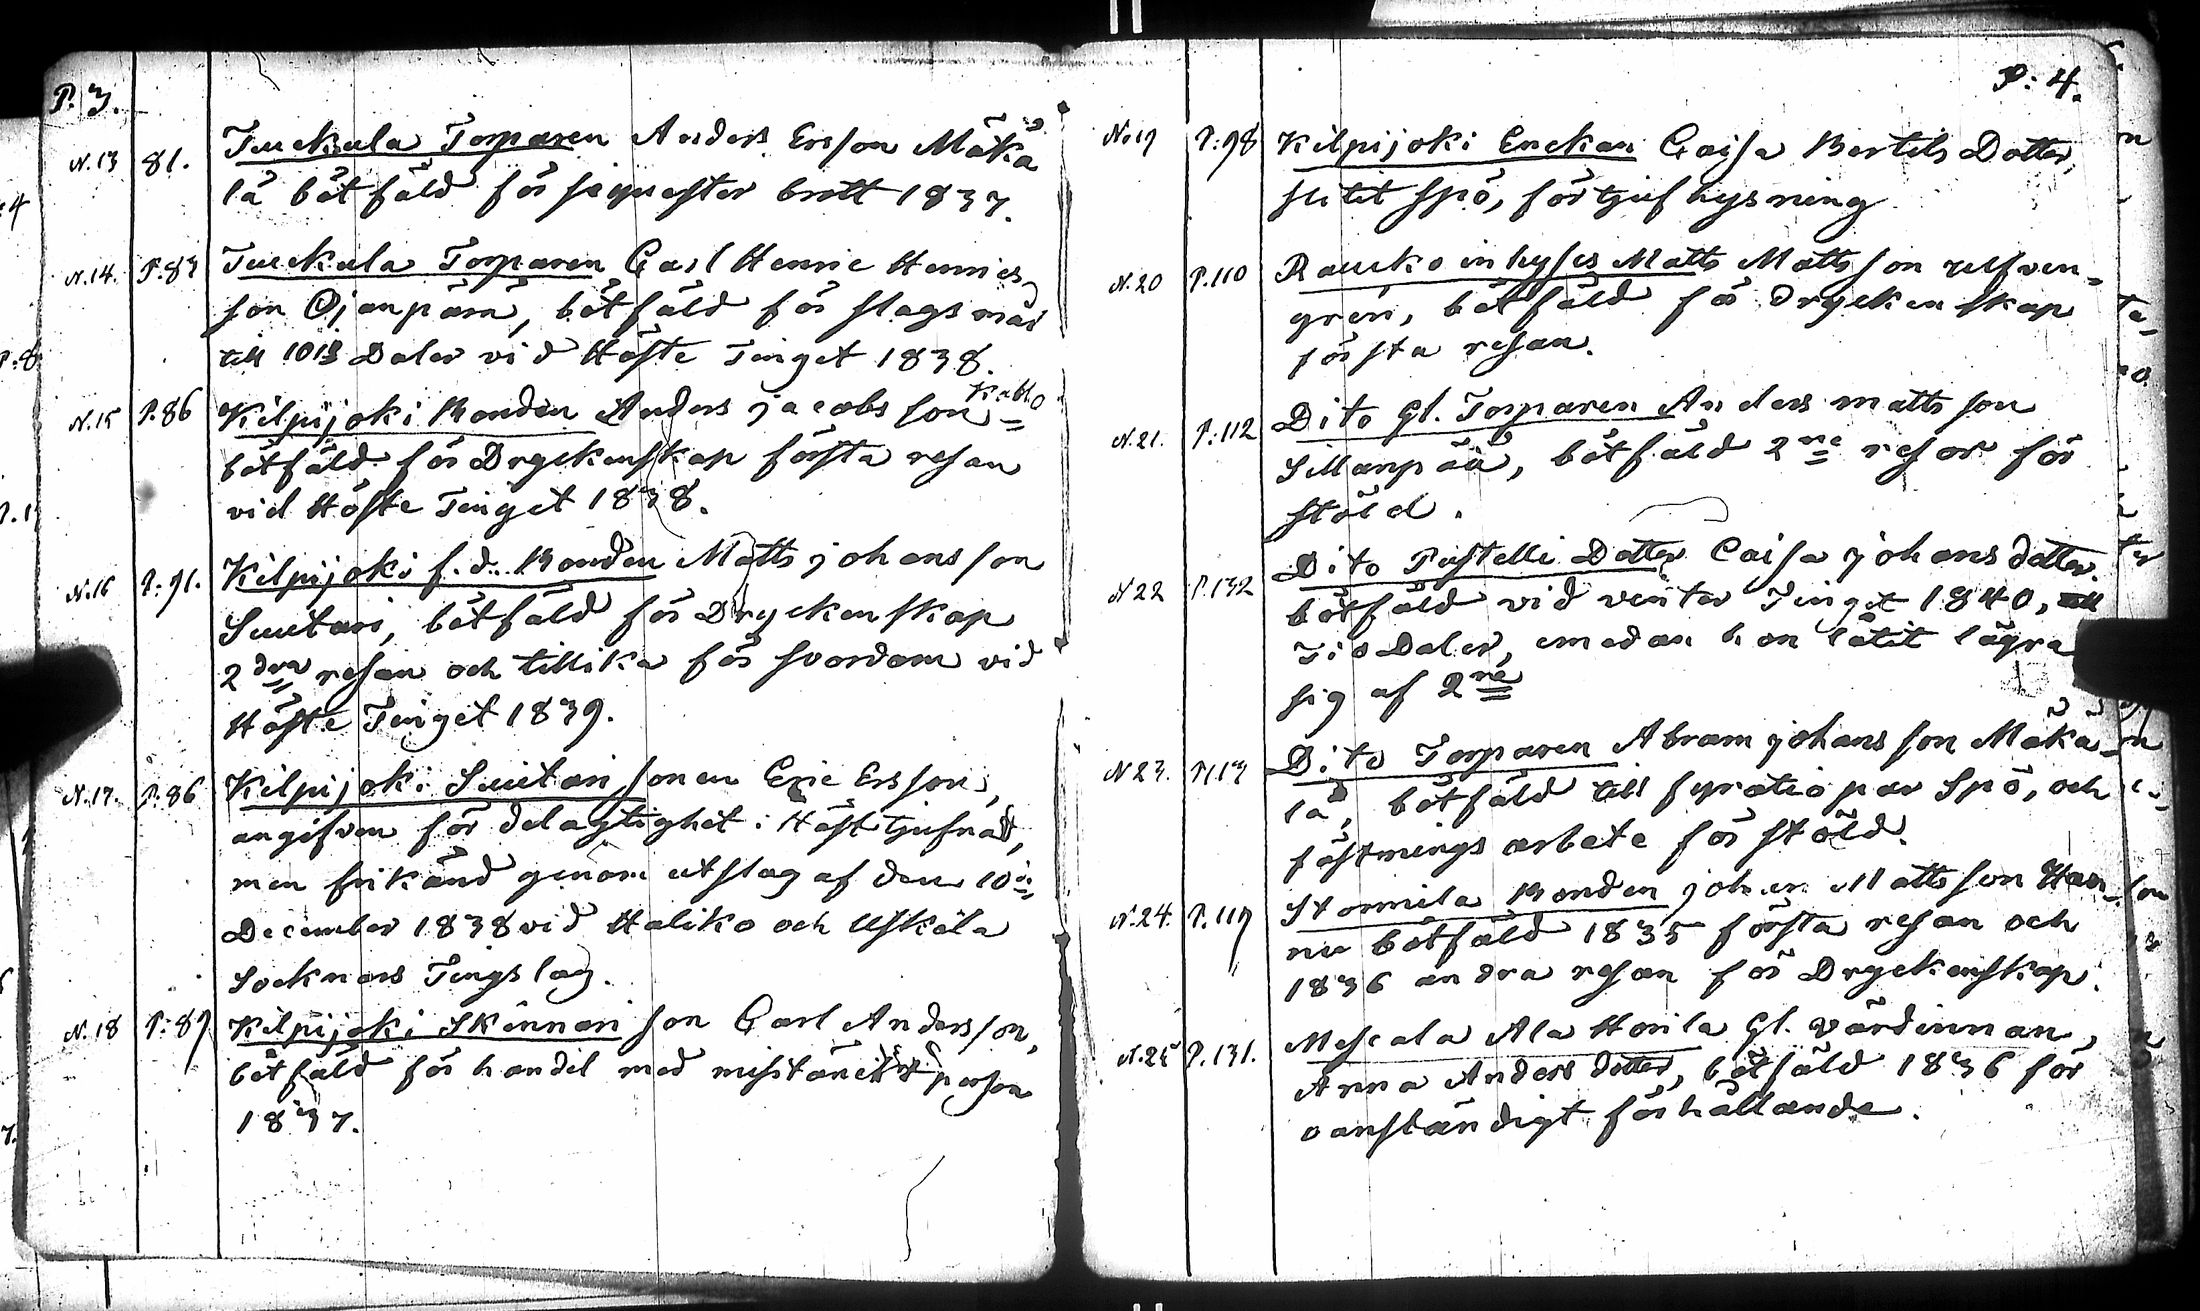 P. 3.
N. 13 81. Tuckula Torparen Anders Ersson Mäkä
lä bötfäld för sequester brott 1837.
N. 14. P. 87 Tuckula Torparen Carl Henric Henrics
son Ojanpärä, bötfäld för slagsmål
till 10 Daler vid Höste Tinget 1838.
N. 15 P. 86 Kilpijoki Bonden Anders Jacobsson Kallo =
bötfäld för Dryckenskap första resan
vid Höste Tinget 1838.
N. 16 P. 91. Kilpijoki f.d. Bonden Matts Johansson
Suutari, bötfäld för Dryckenskap
2dra resan och tillika för svordom vid
Höste Tinget 1839.
N. 17. P. 86 Kilpijoki Suutari sonen Eric Ersson,
angifven för delagtighet i Häst tjufnad,
men frikänd genom utslag af den 10de
December 1838 vid Haliko och Uskela
Socknars Tingslag.
N. 18 P: 89 Kilpijoki Skinnari son Carl Andersson,
bötfäld för handel med misstänkt person
1837.
P: 4.
No 19 P: 98 Kilpijoki Enckan Caisa Bertils Dotter,
slitit spö, för tjufhysning
N. 20 P. 110 Raucko inhyses Matts Mattsson
gren, bötfäld för dryckenskap
första resan.
N. 21. P: 112 Dito Gl. Torparen Anders Mattsson
Sillanpää, bötfäld 2ne resor för
stöld.
N 22 P. 132 Dito Pustelli Dotter Caisa Johansdotter.
bötfäld vid vinter Tinget 1840, till
Tio Daler, emedan hon låtit lägra
sig af 2ne
N 23. P. 113 Dito Torparen Abram Johansson Mäkä-
lä, bötfäld till fyratio par Spö, och
fästnings arbete för stöld.
N. 24. P. 119 Stormila Bonden Johan Mattsson Han-
nu bötfäld 1835 första resan och
1836 andra resan för Dryckenskap.
N. 25 P. 131. Mescala Ala Horila Gl. värdinnan,
Anna Anders dotter, bötfäld 1836 för
oanständigt förhållande.